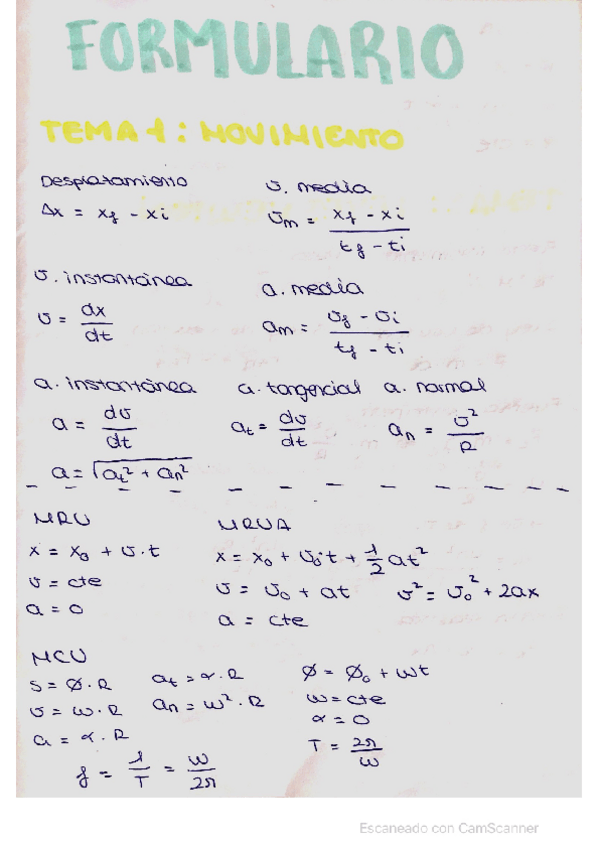 FORMULARIO
TEMA 1: MOVIMIENTO
Desplazamiento
Δx = xf - xi
v. media
vm = (xf - xi) / (tf - ti)
v. instantánea
v = dx/dt
a. media
am = (vf - vi) / (tf - ti)
a. instantánea
a = dv/dt
a = √(at² + an²)
a. tangencial
at = dv/dt
a. normal
an = v²/R
MRU
x = x0 + v·t
v = cte
a = 0
MRUA
x = x0 + v0·t + 1/2 at²
v = v0 + at v² = v0² + 2ax
a = cte
MCU
s = Ø·R
v = ω·R
a = α·R
f = 1/T = ω/2π
at = α·R
an = ω²·R
Ø = Ø0 + ωt
ω = cte
α = 0
T = 2π/ω
Escaneado con CamScanner